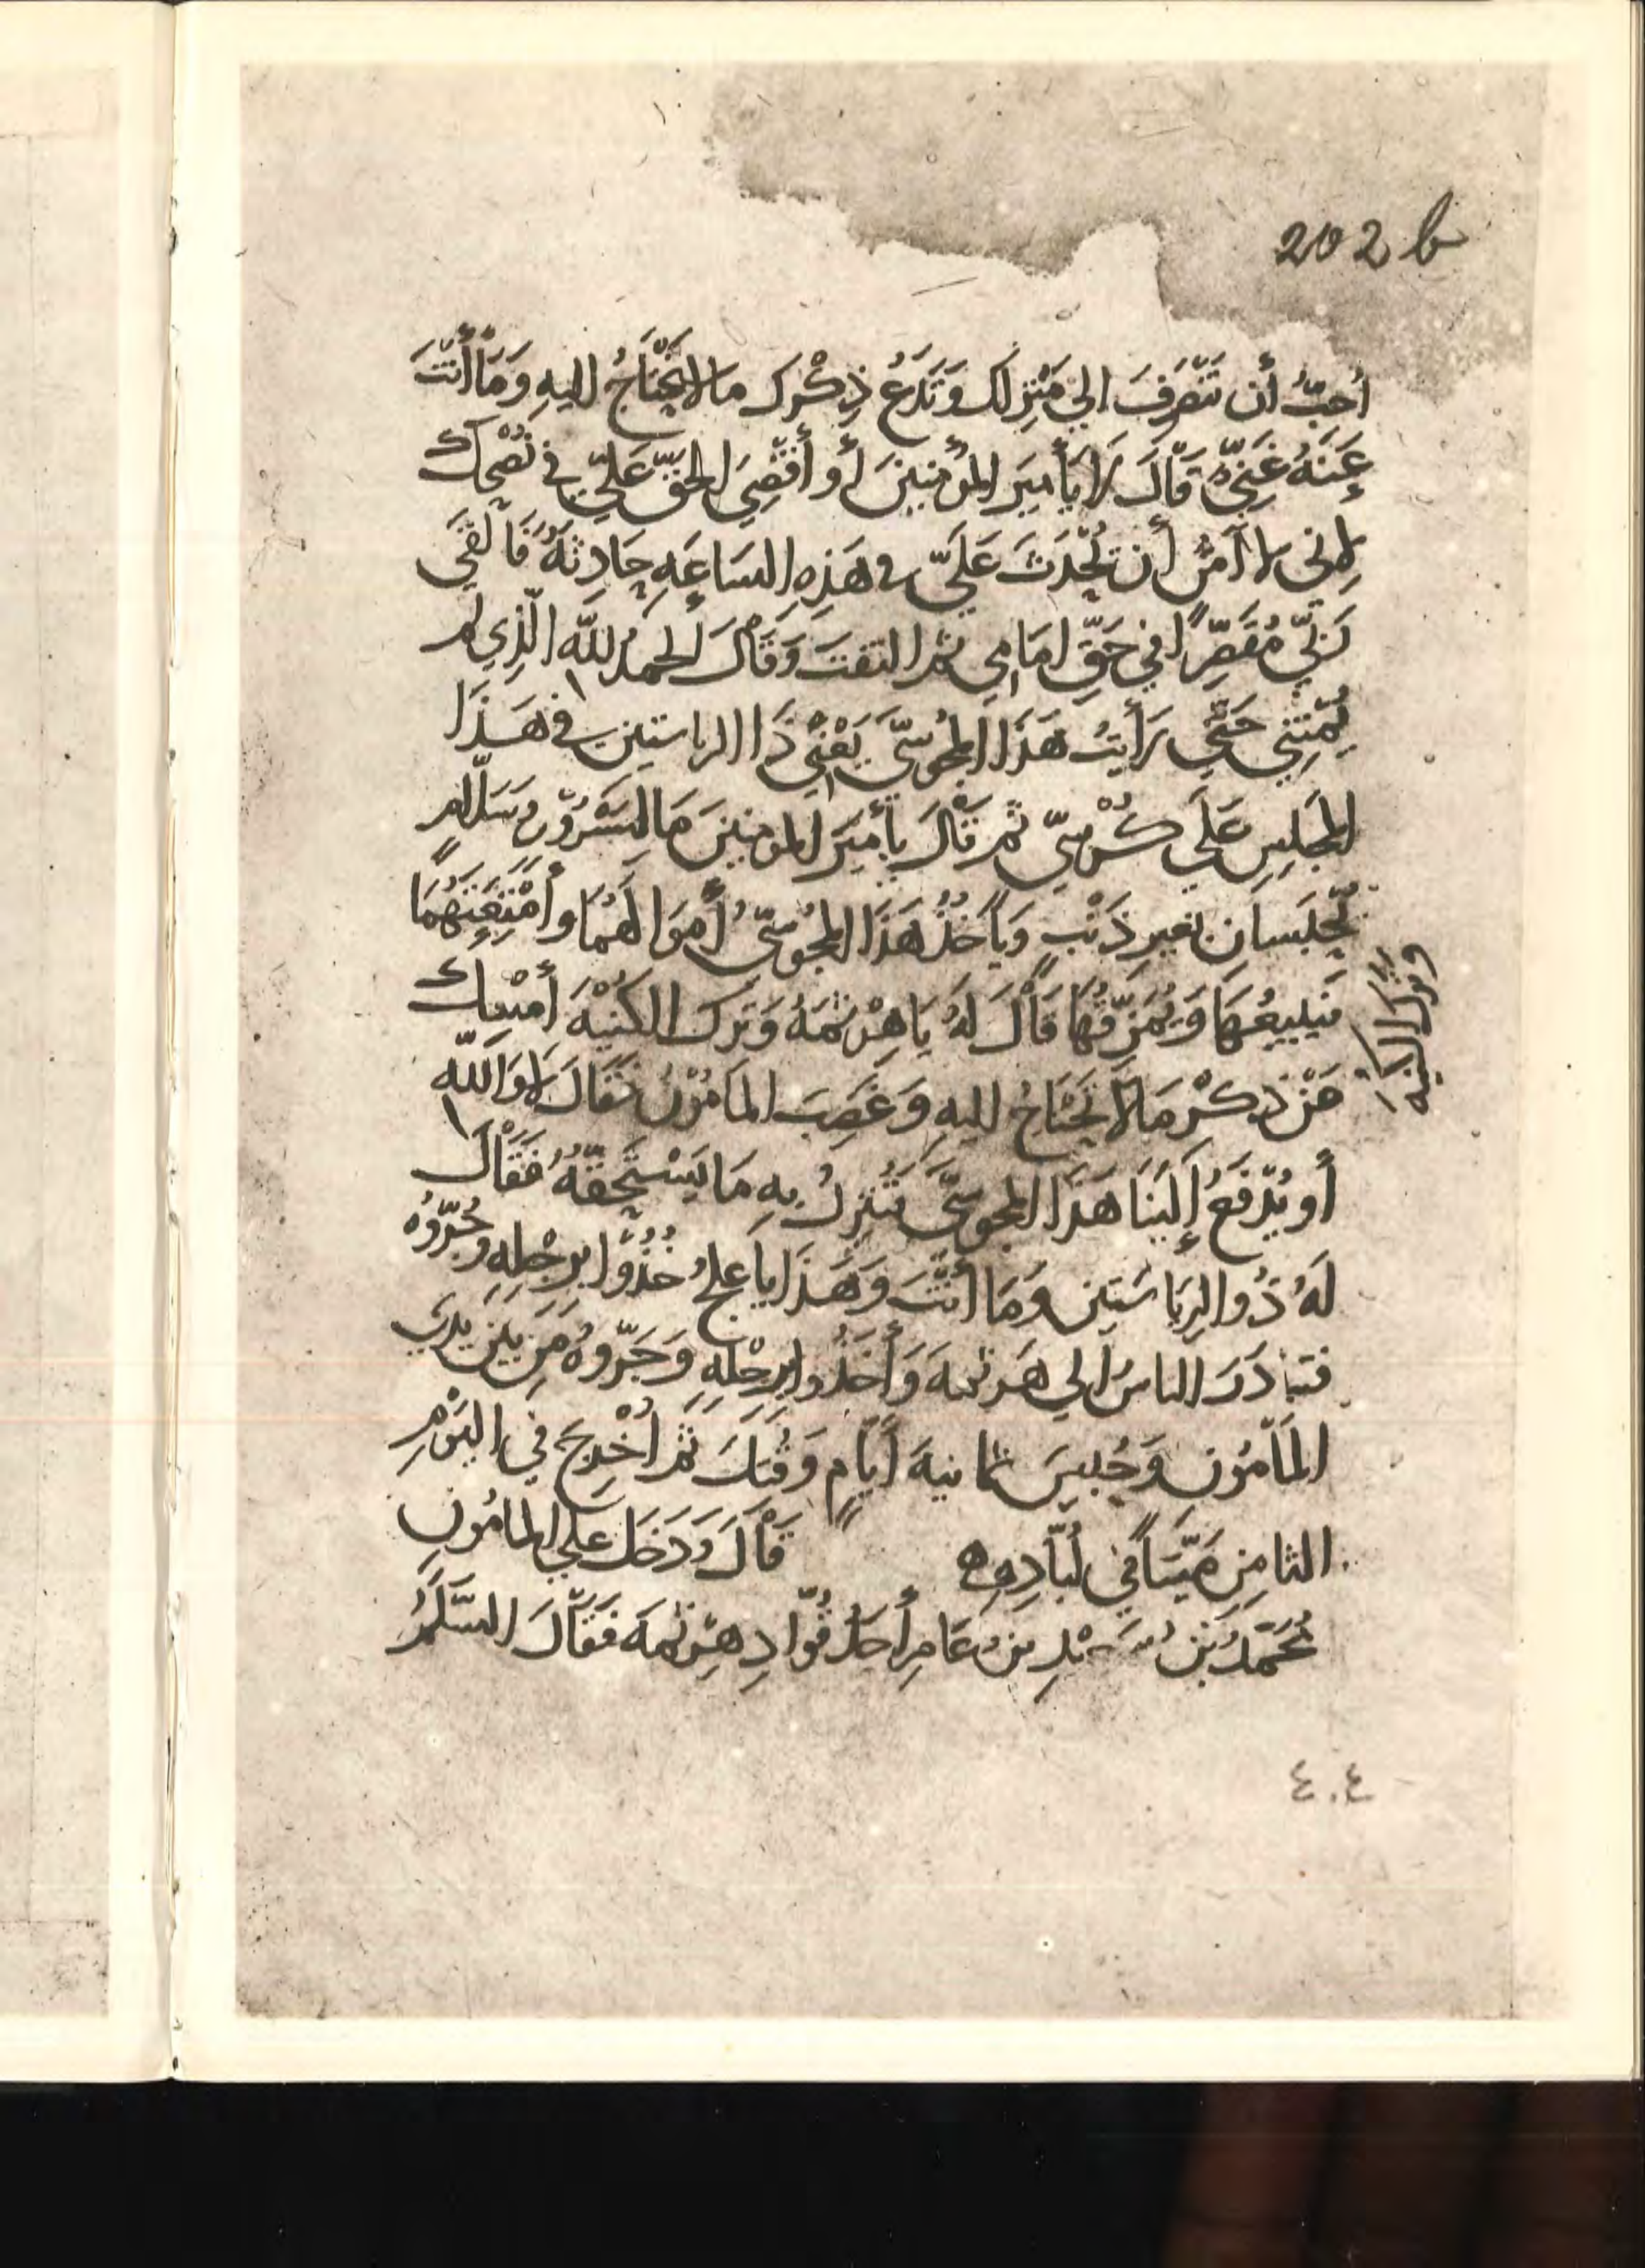 202 b
أُحِبُّ أن تَنْصَرِفَ إلى مَنْزِلك وَتَدَعْ ذِكْرَك ما لا يُحْتَاجُ إليهِ وَمَا أَنْتَ
عَنَهُ غَنِيٌّ قَالَ لا يا أمِيرَ المُؤْمِنِينَ أو أَقْضِيَ الحَقَّ عَلَيَّ في نُصْحِكَ
لأني لا آمَنُ أن تَحْدَثَ عَلَيَّ في هَذِهِ السَاعَةِ حَادِثَةٌ فَالْقَى
رَبّي مُقَصِّرًا في حَقِّ امَامِي ثم التفتَ وَقَالَ الحَمدُ لله الّذِي لم
يُمِتْنِي حَتَّى رَأَيتُ هَذَا المَجُوسِّيَ يَعْنِي ذَا الرياستين في هَذَا
المَجلِسِ عَلَى كُرْسِيّ ثم قَالَ يا أمِيرَ المومنِينَ مَا لِسَرْوٍ وسَلّامٍ
يُحْبَسانِ بغيرِ ذَنْبٍ وَيَأخُذُ هَذَا المَجُوسِّيُ أَموَالَهُمَا وأَمْتِعَتَهُمَا
فيَبِيعُهَا وَيُمَزِّقُهَا قَالَ لَهُ يَا هِرْثمَهُ وَتَرَكَ الكُنْيَةَ أَمْسِك
وَتَرَكَ الكنية
عَنْ ذِكْرِ مَا لا تَحْتَاجُ إليهِ وَغَضِبَ المَامُوْنُ فقَالَ لا وَاللّهِ
أَو يُدْفَعُ إِلَيْنَا هَذَا المَجوسِّيُ فنُنْزِلُ بِهِ مَا يَسْتَحِقُّهُ فَقَالَ
لَهُ ذُو الرِيَاسَتين وَمَا أَنْتَ وَهَذَا يا عِلْجُ خُذُوا بِرِجْلِهِ وجُرّوُهُ
فتبَادَرَ الناسُ إلى هَرثمةَ وَأَخَذُوا بِرِجْلِهِ وَجَرّوهُ مِن بَيْنِ يَدَيِ
المَأمُونِ وَحُبِسَ ثمانيةَ أَيّامٍ وَقُتِلَ ثم أُخْرِجَ في اليَوْمِ
الثامِنِ مَيّتًا في لُبّادِهِ قَالَ وَدَخَلَ على المامُونِ
مُحَمّدُ بْنُ سَعِيْدِ بنِ عَامِرٍ أَحَدُ قُوّادِ هِرْثمَةَ فَقَالَ السَّلَمُ
٤٠٤